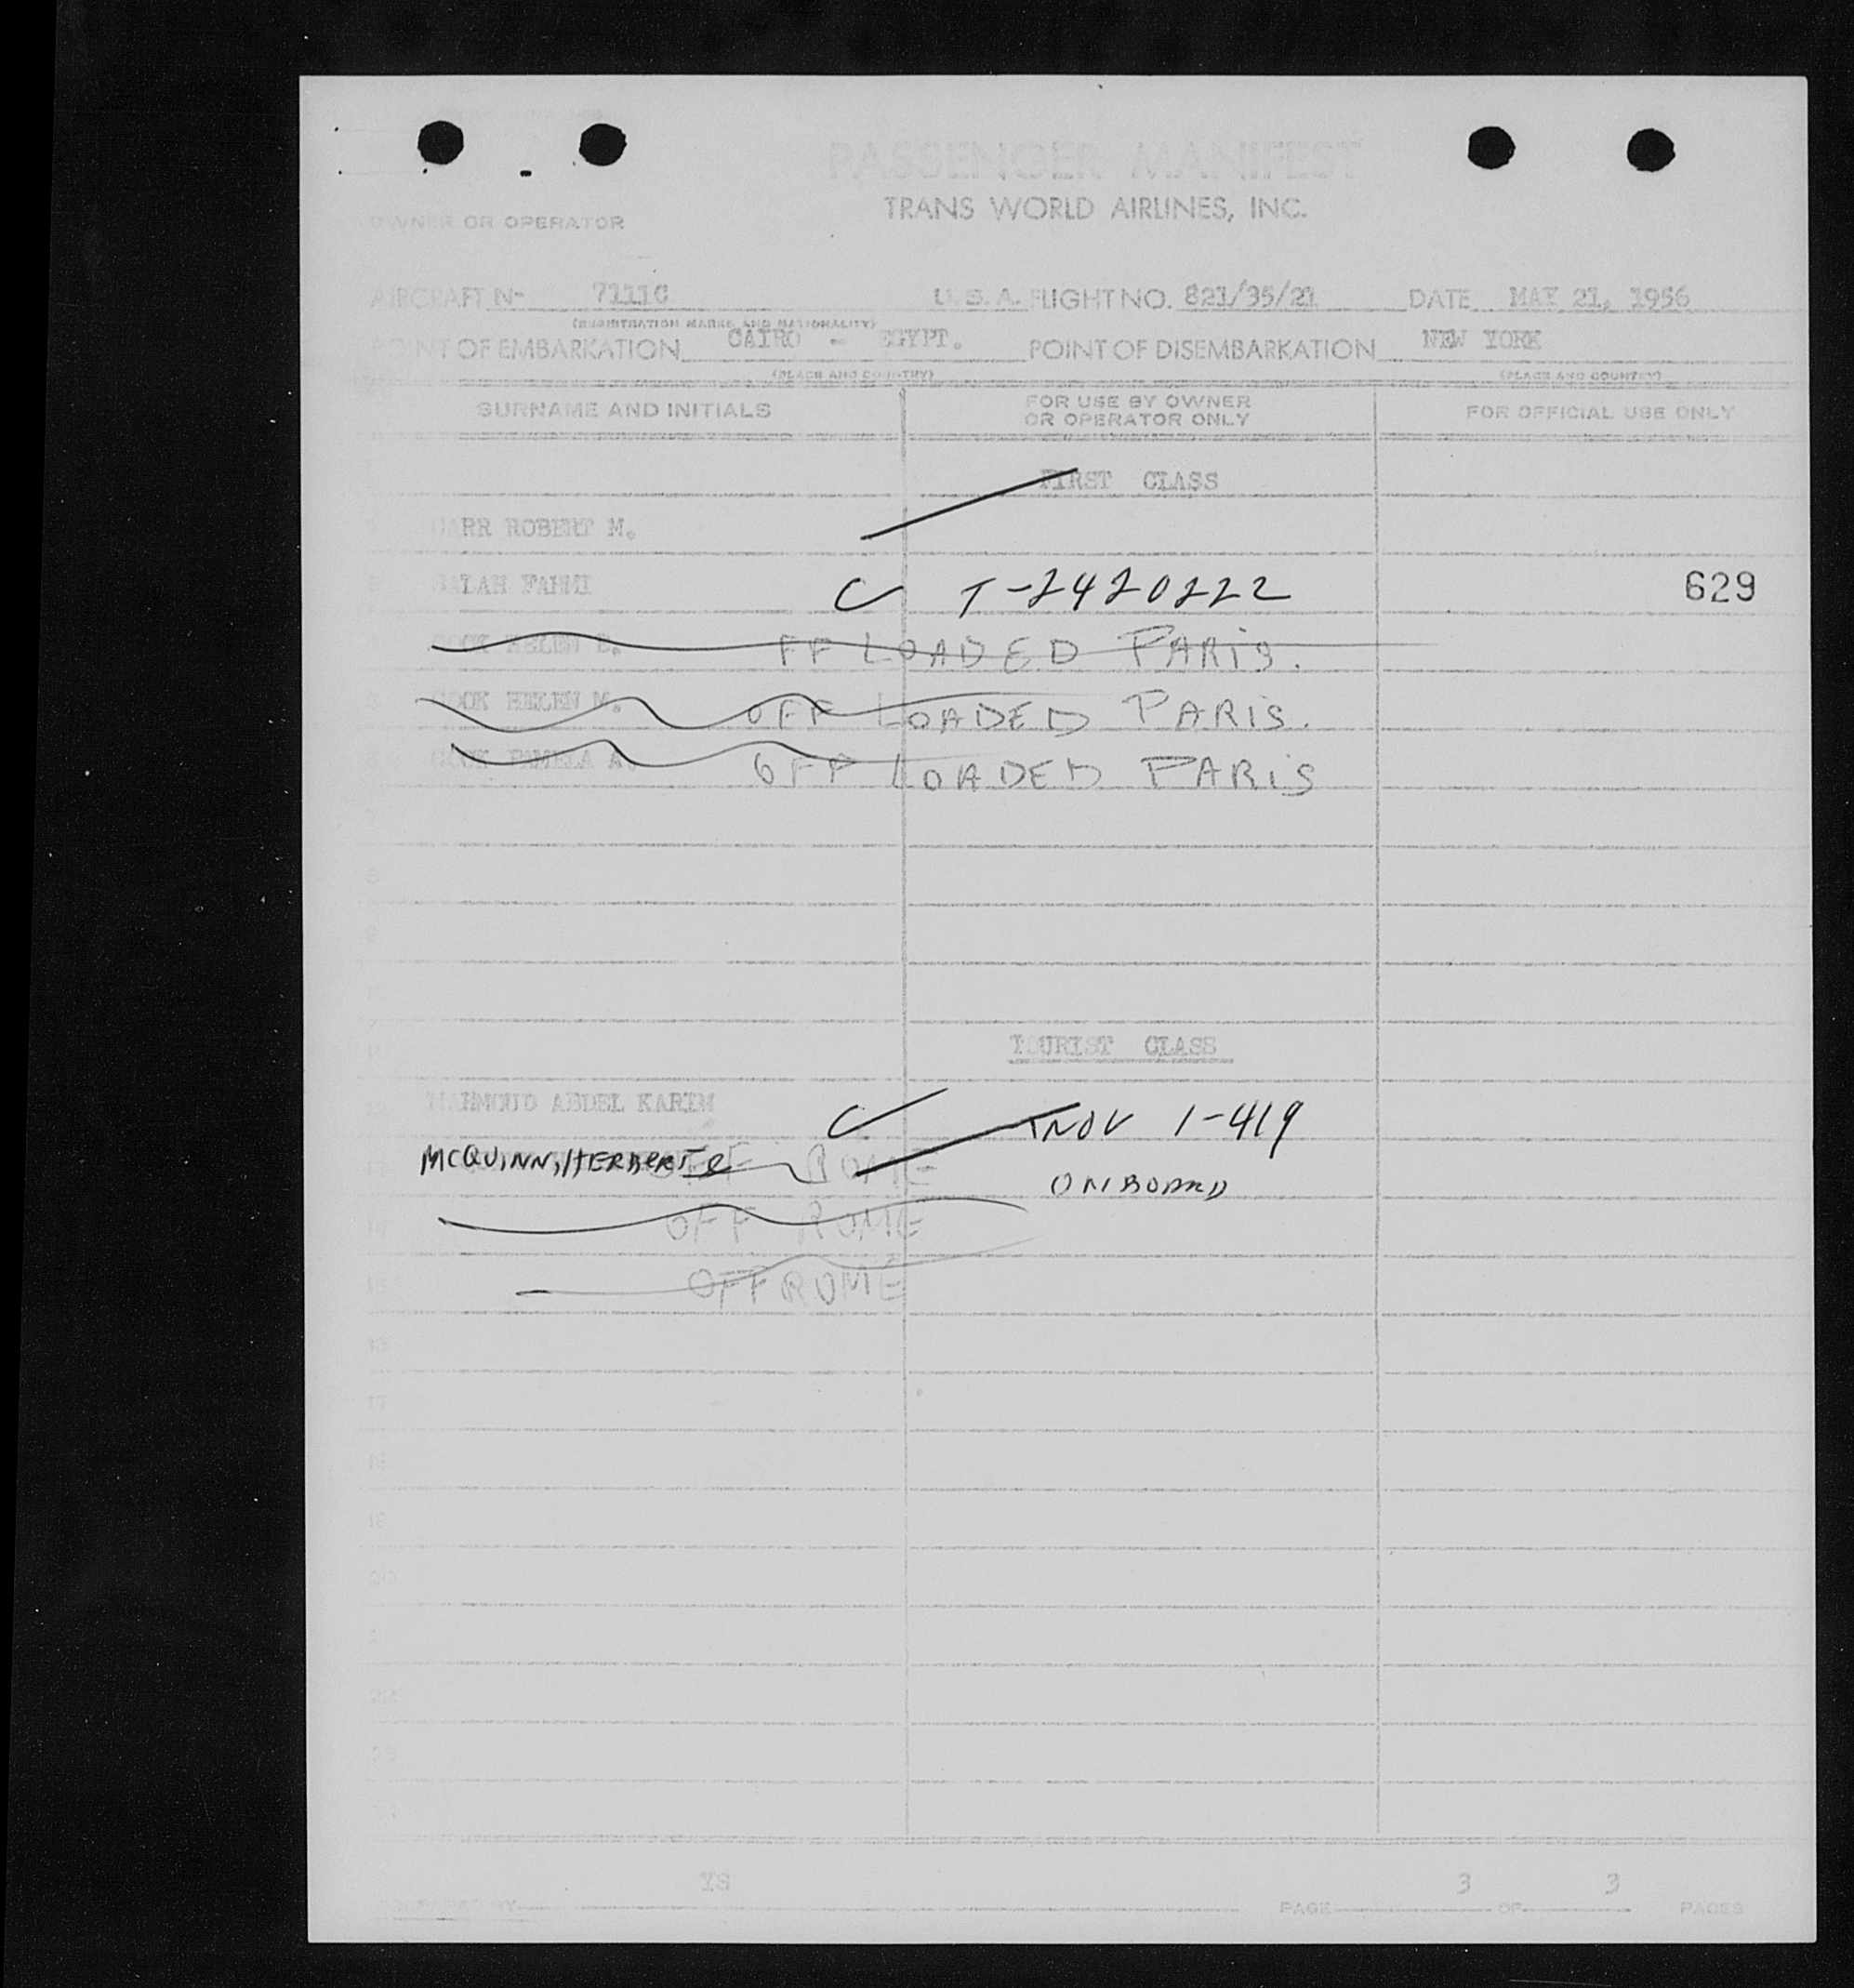 PASSENGER MANIFEST
TRANS WORLD AIRLINES, INC.
OWNER OR OPERATOR
AIRCRAFT N- 7111C U. S. A. FLIGHT NO. 821/35/21 DATE MAY 21, 1956
(REGISTRATION MARKS AND NATIONALITY)
POINT OF EMBARKATION CAIRO - EGYPT. POINT OF DISEMBARKATION NEW YORK
(PLACE AND COUNTRY) (PLACE AND COUNTRY)
SURNAME AND INITIALS FOR USE BY OWNER OR OPERATOR ONLY FOR OFFICIAL USE ONLY
FIRST CLASS
CARR ROBERT M.
SALAH FAHMI T-2420222 629
COOK HELEN B. FF LOADED PARIS.
COOK HELEN M. OFF LOADED PARIS.
COOK PAMELA A. OFF LOADED PARIS
TOURIST CLASS
MAHMOUD ABDEL KARIM INOV 1-419
MCQUINN, HERBERT OFF ROME ONBOARD
OFF ROME
OFF ROME
YS 3 3
PAGE OF PAGES